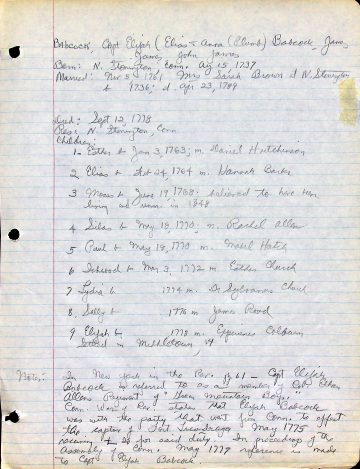 Babcock, Capt Elijah (Elias & Anna (Plumb) Babcock, James,
James, John, James
Born: N. Stonington, Conn. Aug 15, 1737
Married: Nov 5, 1761 Mrs Sarah Brown of N. Stonington
b 1736; d Apr 23, 1789
Died: Sept 12, 1778
Res: N. Stonington, Conn
Children:
1 Esther b Jan 3, 1763; m. Daniel Hutchinson
2 Elias b 24, 1764 m. Hannah
3 Moses b June 19, 1768: believed to have been
living in 1848
4 Silas b May 18, 1770 m. Rachel Allen
5 Paul b May 18, 1770 m. Mabel Hatch
6 b Mar 3, 1772 m Church
7 Lydia b 1774 m. Dr Sylvanus Church
8 Sally b 1776 m James Rood
9 Elijah b 1778 m. Experience
lived in Middletown, Vt
Notes: In New York in the Rev. p 61 - Capt Elijah
Babcock is referred to as a member of Col. Ethan
Allens Regiment of "Green Mountain Boys."
Conn Men of Rev. states that Elijah Babcock
was with the party that left from Conn. to effect
the capture of Fort Ticonderoga May 1775
receiving for said duty. In proceedings of the
Assembly of Conn. May 1779 reference is made
to Capt Elijah Babcock.